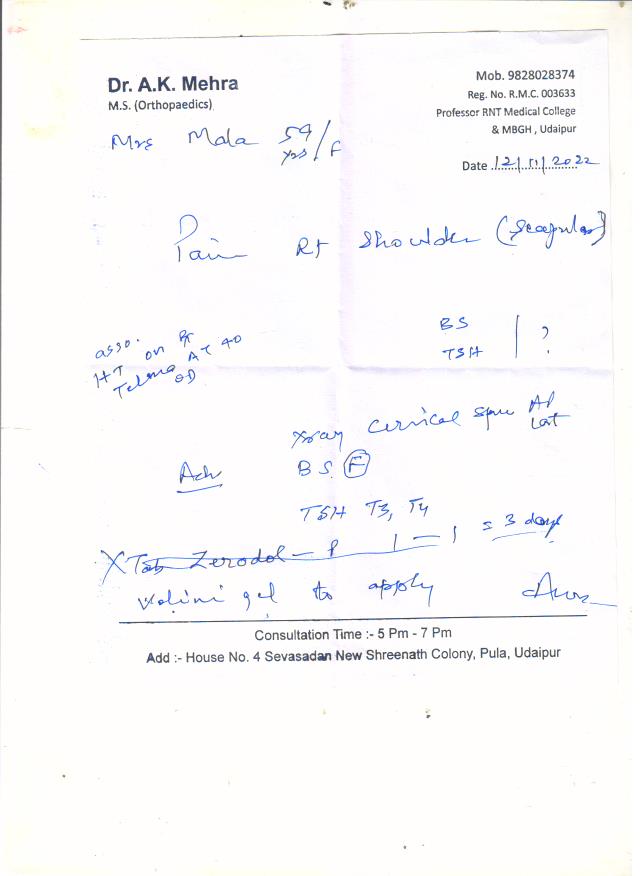 Dr. A.K. Mehra
M.S. (Orthopaedics)
Mob. 9828028374
Reg. No. R.M.C. 003633
Professor RNT Medical College
& MBGH , Udaipur
Mrs Mala 59 yrs / F
Date 12/11/2022
Pain Rt Shoulder (Scapular)
BS
TSH ?
asso.
HT on Rx
Telma AT 40
OD
Xray Cervical Spine AP
Lat
Adv B S (F)
TSH T3, T4
X Tab Zerodol - P 1 — 1 x 3 days
Volini gel to apply
Consultation Time :- 5 Pm - 7 Pm
Add :- House No. 4 Sevasadan New Shreenath Colony, Pula, Udaipur